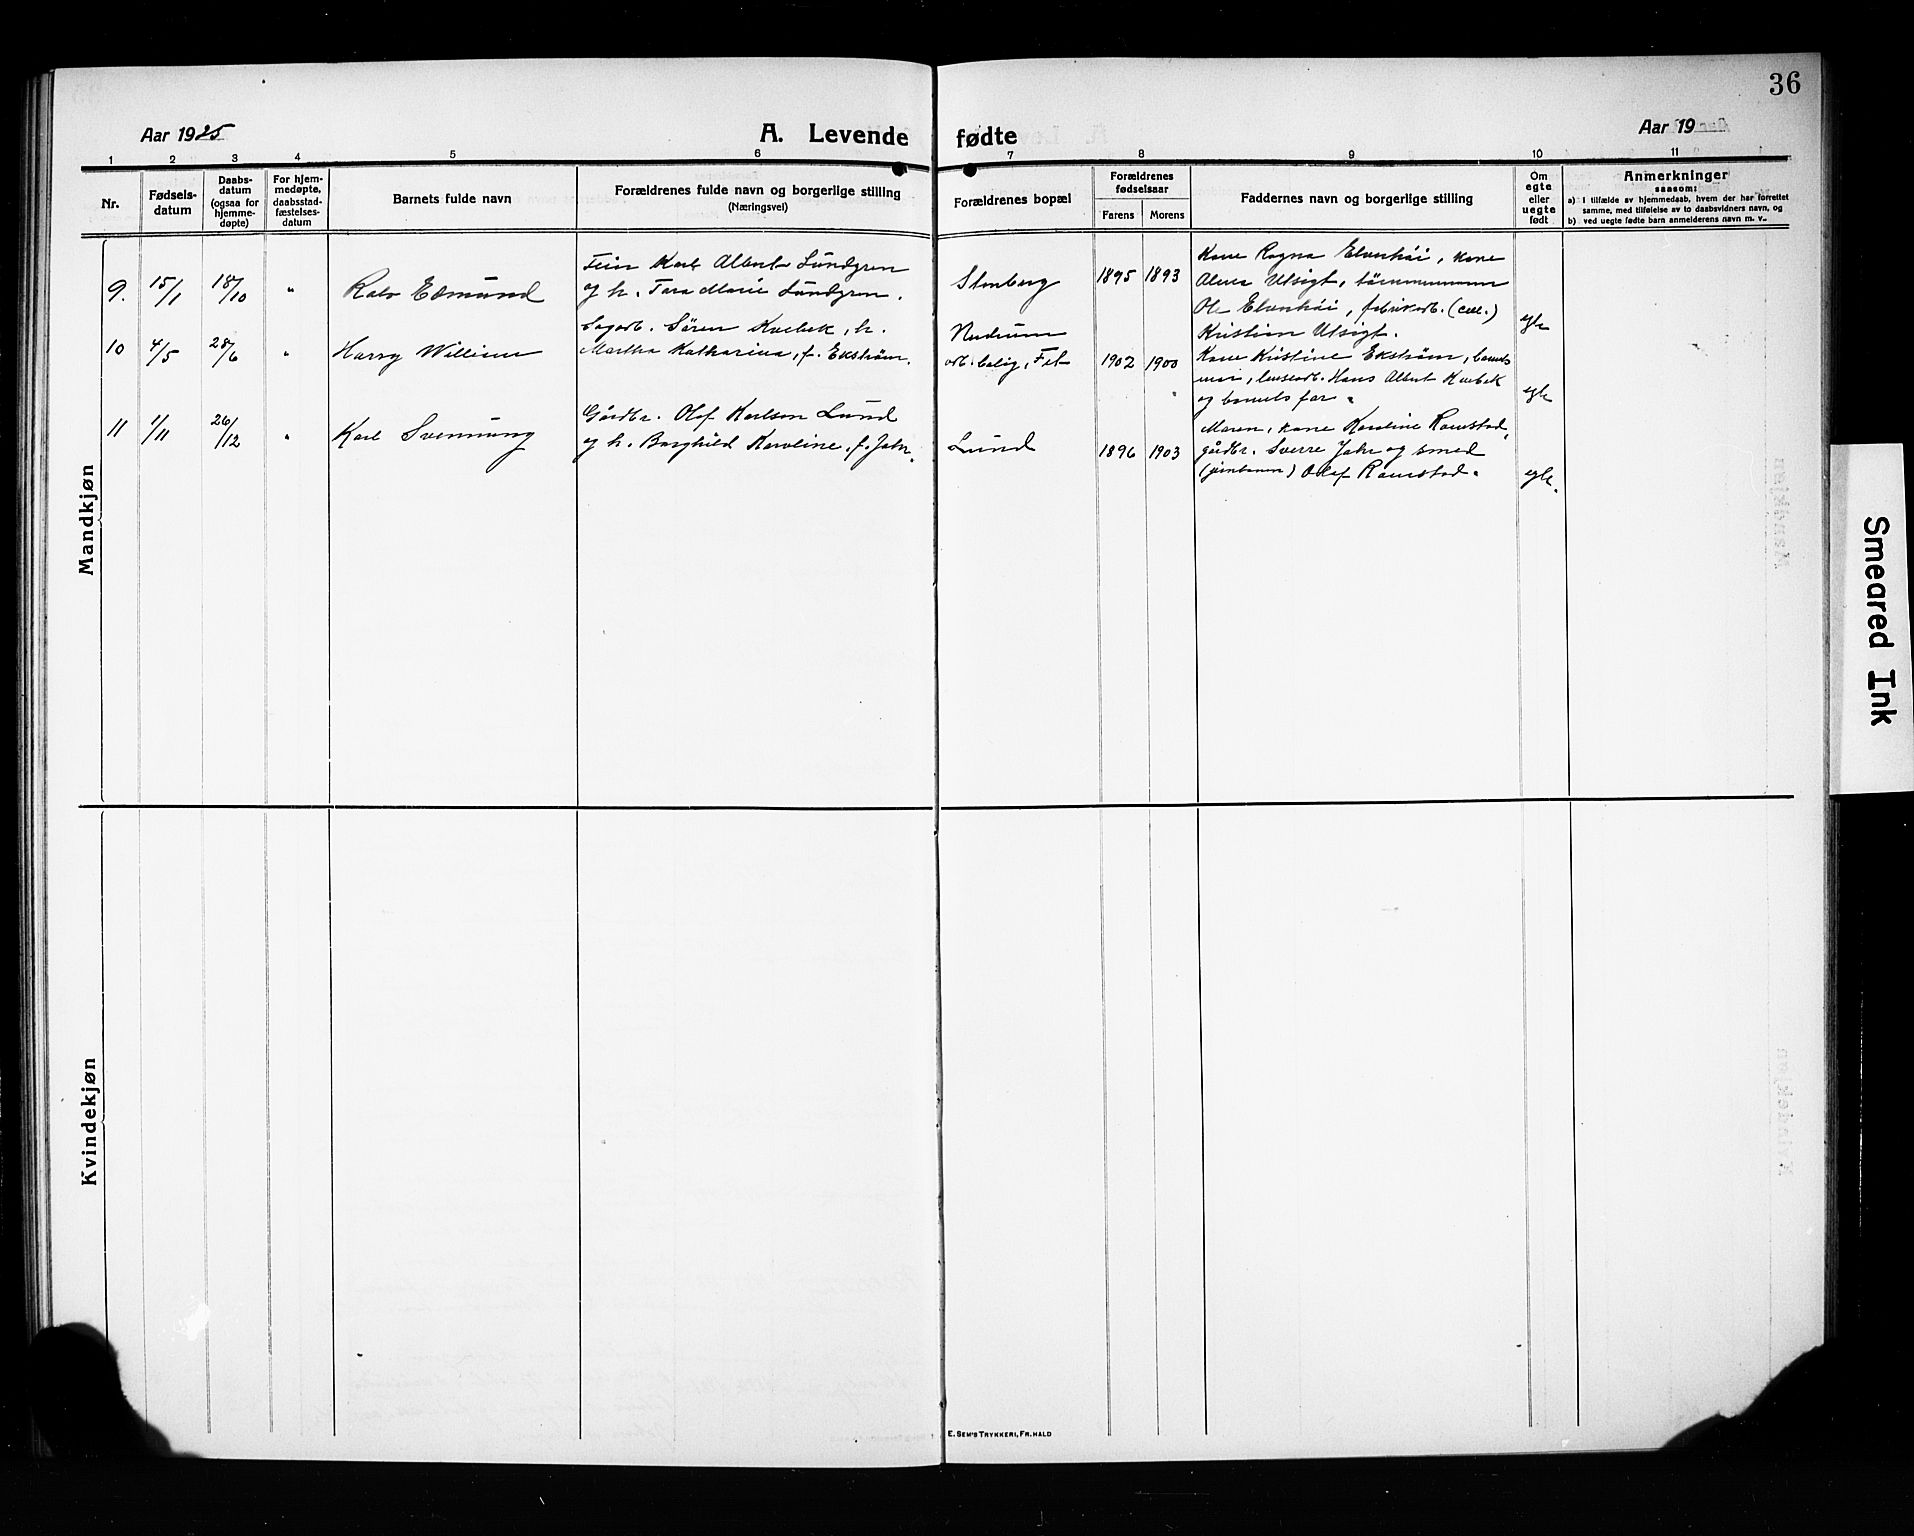 36
Aar 1925
A. Levende fødte
Aar 19
1 2 3 4 5 6 7 8 9 10 11
Nr.
Fødsels-
datum
Daabs-
datum
(ogsaa for
hjemme-
døpte)
For hjem-
medøpte,
daabsstad-
fæstelses-
datum
Barnets fulde navn
Forældrenes fulde navn og borgerlige stilling
(Næringsvei)
Forældrenes bopæl
Forældrenes
fødselsaar
Farens Morens
Faddernes navn og borgerlige stilling
Om
egte
eller
uegte
født
Anmerkninger
saasom:
a) I tilfælde av hjemmedaab, hvem der har forrettet
samme, med tilføielse av to daabsvidners navn, og
b) ved uegte fødte barn anmelderens navn m. v.
Mandkjøn
9. 15/1 18/10 "
Edmund
Karl Albert Lundgren
og h. Tara Marie Lundgren.
Stenberg
1895 1893
Kone Ragna Elvenhöi, kone
Utsigt,
Ole Elvenhöi, fabrikarb.
Kristian Utsigt.
egte
10 4/5 28/6 "
Harry William
Sagarb. Sören Kvebek, h.
Martha Katharina, f. Ekström.
arb. bolig, Fet
1902 1900
Kone Kristine Ekström, barnets
mor, Hans Albert Kvebek
og barnets far.
egte
11 1/11 26/12 "
Karl Svennung
Gårdbr. Olaf Karlson Lund
og h. Borghild Karoline, f. Jahr.
Lund
1896 1903
Moren, kone Karoline Ramstad,
gårdbr. Sverre Jahr og smed
Olaf Ramstad.
egte.
Kvindekjøn
E. Sem's Trykkeri, Fr.hald
Smeared Ink